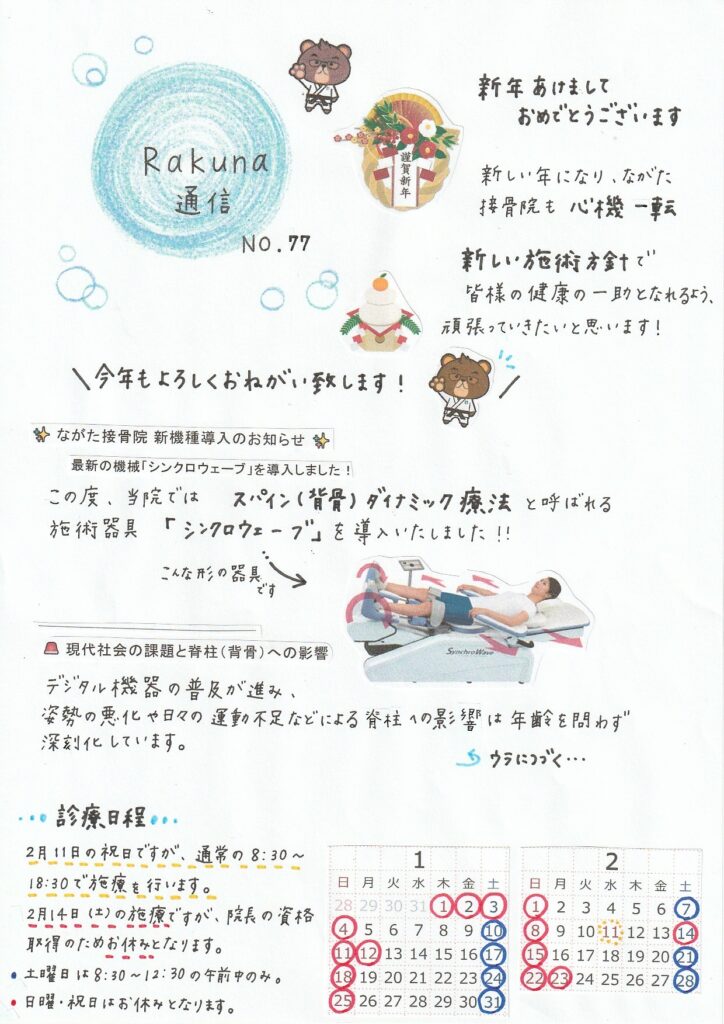 Rakuna
通信
NO.77
謹賀新年
新年あけまして
おめでとうございます
新しい年になり、ながた
接骨院も 心機一転
新しい施術方針で
皆様の健康の一助となれるよう、
頑張っていきたいと思います!
\今年もよろしくおねがい致します!/
ながた接骨院 新機種導入のお知らせ
最新の機械「シンクロウェーブ」を導入しました!
この度、当院では スパイン(背骨)ダイナミック療法 と呼ばれる
施術器具 「シンクロウェーブ」を導入いたしました!!
こんな形の器具
です
SynchroWave
現代社会の課題と脊柱(背骨)への影響
デジタル機器の普及が進み、
姿勢の悪化や日々の運動不足などによる脊柱への影響は年齢を問わず
深刻化しています。
ウラにつづく…
診療日程
2月11日の祝日ですが、通常の8:30~
18:30で施療を行います。
2月14日(土)の施療ですが、院長の資格
取得のためお休みとなります。
・土曜日は8:30~12:30の午前中のみ。
・日曜・祝日はお休みとなります。
1
日 月 火 水 木 金 土
28 29 30 31 1 2 3
4 5 6 7 8 9 10
11 12 13 14 15 16 17
18 19 20 21 22 23 24
25 26 27 28 29 30 31
2
日 月 火 水 木 金 土
1 2 3 4 5 6 7
8 9 10 11 12 13 14
15 16 17 18 19 20 21
22 23 24 25 26 27 28